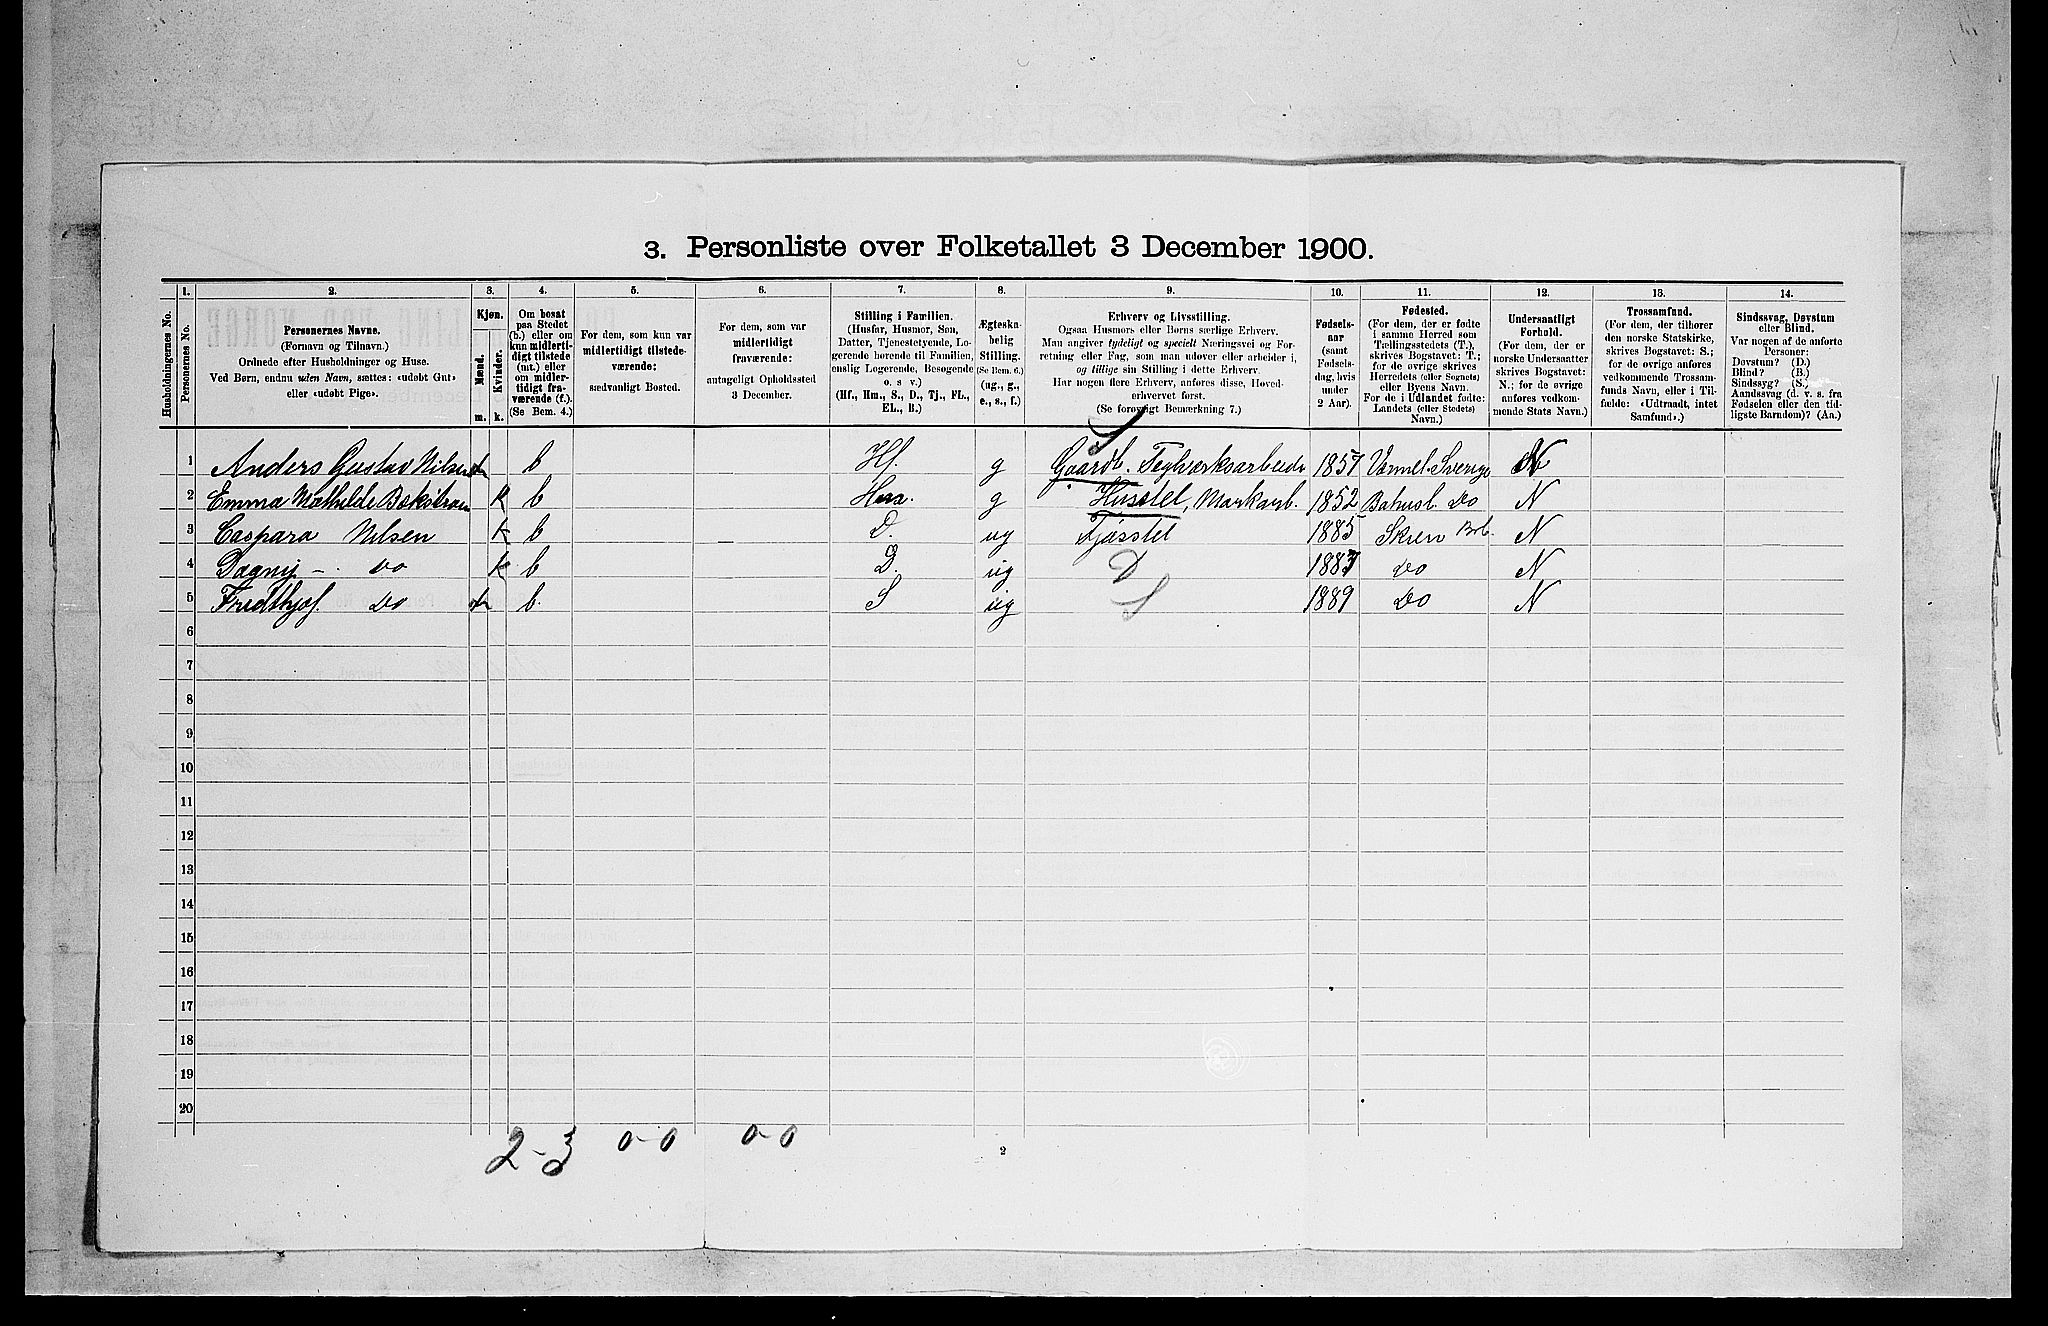 3. Personliste over Folketallet 3 December 1900.
Husholdningernes No.
1.
Personernes No.
2.
Personernes Navne.
(Fornavn og Tilnavn.)
Ordnede efter Husholdninger og Huse.
Ved Børn, endnu uden Navn, sættes: «udøbt Gut»
eller «udøbt Pige».
3.
Kjøn.
Mænd.
Kvinder.
m. k.
4.
Om bosat
paa Stedet
(b.) eller om
kun midlerti-
digt tilstede
(mt.) eller
om midler-
tidigt fra-
værende (f.).
(Se Bem. 4.)
5.
For dem, som kun var
midlertidigt tilstede-
værende:
sædvanligt Bosted.
6.
For dem, som var
midlertidigt
fraværende:
antageligt Opholdssted
3 December.
7.
Stilling i Familien.
(Husfar, Husmor, Søn,
Datter, Tjenestetyende, Lo-
gerende hørende til Familien,
enslig Logerende, Besøgende
o. s v.)
(Hf., Hm., S., D., Tj., FL.,
EL., B.)
8.
Ægteska-
belig
Stilling.
(Se Bem. 6.)
(ug., g.,
e., s., f.)
9.
Erhverv og Livsstilling.
Ogsaa Husmors eller Børns særlige Erhverv.
Man angiver tydeligt og specielt Næringsvei og For-
retning eller Fag, som man udøver eller arbeider i,
og tillige sin Stilling i dette Erhverv.
Har nogen flere Erhverv, anføres disse, Hoved-
erhvervet først.
(Se forøvrigt Bemerkning 7.)
10.
Fødsels-
aar
(samt
Fødsels-
dag, hvis
under
2 Aar).
11.
Fødested.
(For dem, der er fødte
i samme Herred som
Tællingsstedets (T.),
skrives Bogstavet: T.;
for de øvrige skrives
Herredets (eller Sognets)
eller Byens Navn.
For de i Udlandet fødte:
Landets (eller Stedets)
Navn.)
12.
Undersaatligt
Forhold.
(For dem, der er
norske Undersaatter
skrives Bogstavet:
N.; for de øvrige
anføres vedkom-
mende Stats Navn.)
13.
Trossamfund.
(For dem, der tilhører
den norske Statskirke,
skrives Bogstavet: S.;
for de øvrige anføres
vedkommende Trossam-
funds Navn, eller i Til-
fælde: «Udtraadt, intet
Samfund».)
14.
Sindssvag, Døvstum
eller Blind.
Var nogen af de anførte
Personer:
Døvstum? (D.)
Blind? (B.)
Sindssyg? (S.)
Aandssvag (d. v. s. fra
Fødselen eller den tid-
ligste Barndom)? (Aa.)
S
1 Anders Gustav Nilsen m b Hf. g Gaardb. Teglværksarbeide 1857 Vermel. Sverige N
2 Emma Mathilde Bækström k b Hm. g Husstel, Markarb. 1852 Bahusl. Do N
3 Caspara Nilsen k b D. ug Fjøsstel 1885 Skien N
4 Dagny -. Do k b D. ug D 1887 Do N
5 Fredthjof. Do m b. S ug S 1889 Do N
6
7
8
9
10
11
12
13
14
15
16
17
18
19
20
2-3 0-0 0-0
2